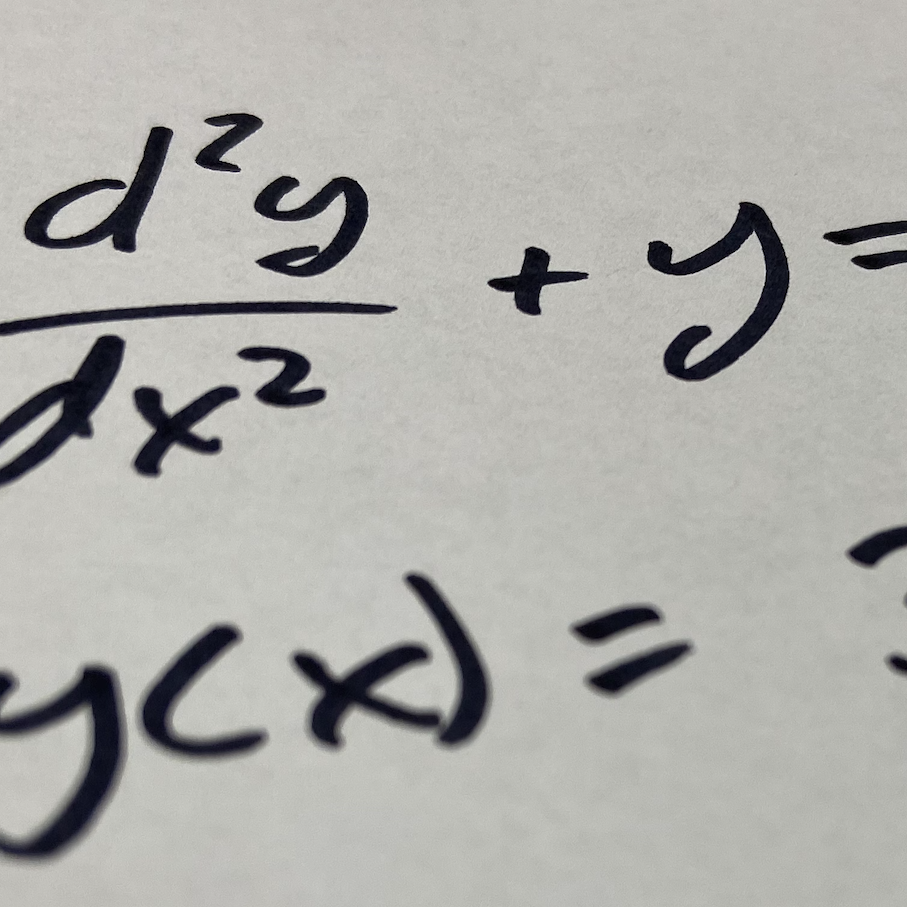 d²y/dx² + y =
y(x) = ?